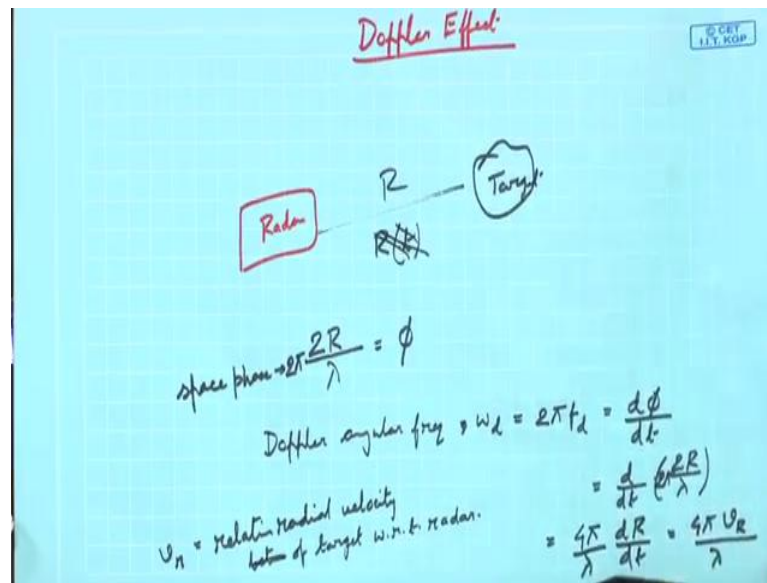 Doppler Effect
© CET
I.I.T. KGP
R
Radar
Target
R(t)
space phase → 2π 2R/λ = φ
Doppler angular freq, ω_d = 2π f_d = dφ/dt
= d/dt (2π 2R/λ)
v_r = relative radial velocity
of target w.r.t. radar.
= 4π/λ dR/dt = 4π v_R/λ